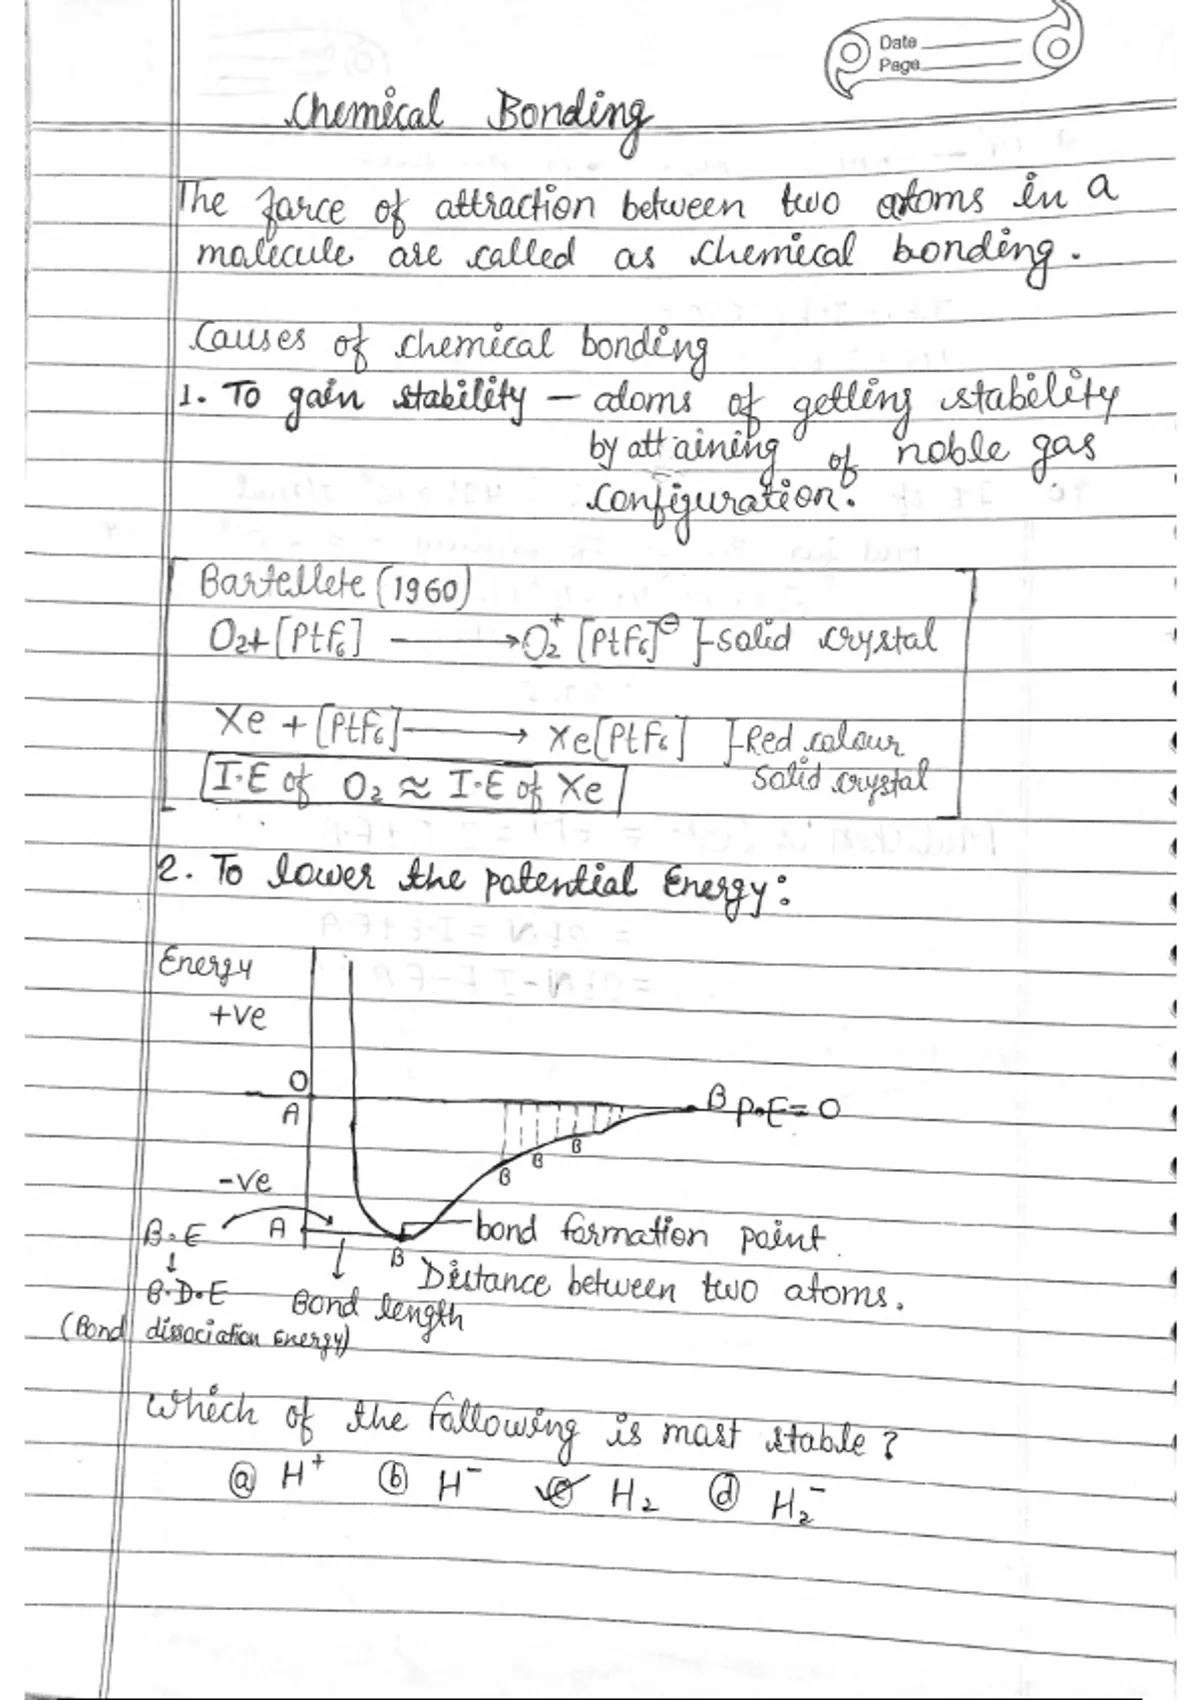 Date
Page
Chemical Bonding
The force of attraction between two atoms in a
molecule are called as chemical bonding.
Causes of chemical bonding
1. To gain stability – atoms of getting stability
by attaining of noble gas
configuration.
Bartellete (1960)
O₂+[PtF₆] ⟶ O₂⁺ [PtF₆]⊖ }-solid crystal
Xe + [PtF₆] ⟶ Xe[PtF₆] }-Red colour
Solid crystal
I·E of O₂ ≈ I·E of Xe
2. To lower the potential Energy:
Energy
+ve
O
A
B P.E=0
B
B
B
-ve
B.E
A
bond formation point.
B
Distance between two atoms.
B.D.E
Bond length
(Bond dissociation Energy)
Which of the following is most stable?
ⓐ H⁺ ⓑ H⁻ ✓ⓒ H₂ ⓓ H₂⁻